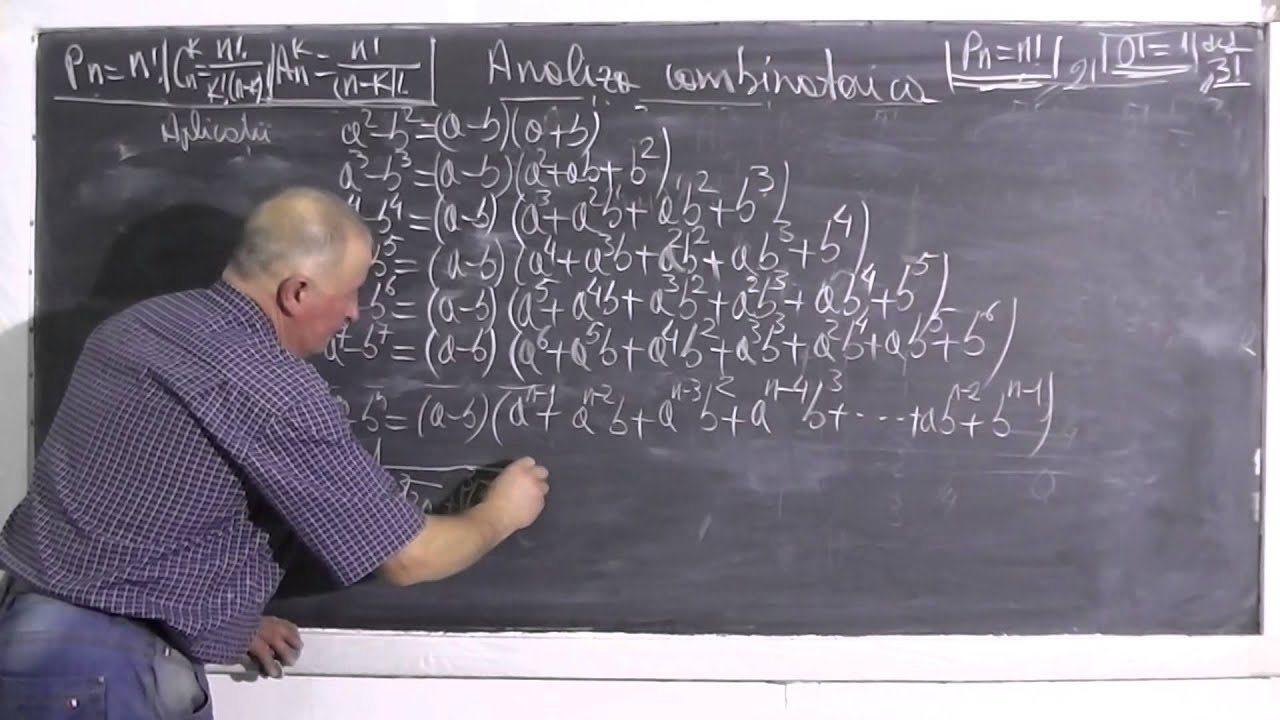 Pn=n! | C_n^k = n!/(k!(n-k)!) | A_n^k = n!/(n-k)! | Analiza combinatorica | Pn=n! | 2! | 0!=1 | 3!
Aplicatii
a²-b²=(a-b)(a+b)
a³-b³=(a-b)(a²+ab+b²)
⁴-b⁴=(a-b)(a³+a²b+ab²+b³)
b⁵=(a-b)(a⁴+a³b+a²b²+ab³+b⁴)
b⁶=(a-b)(a⁵+a⁴b+a³b²+a²b³+ab⁴+b⁵)
a⁷-b⁷=(a-b)(a⁶+a⁵b+a⁴b²+a³b³+a²b⁴+ab⁵+b⁶)
-bⁿ=(a-b)(aⁿ⁻¹+aⁿ⁻²b+aⁿ⁻³b²+aⁿ⁻⁴b³+....+abⁿ⁻²+bⁿ⁻¹)